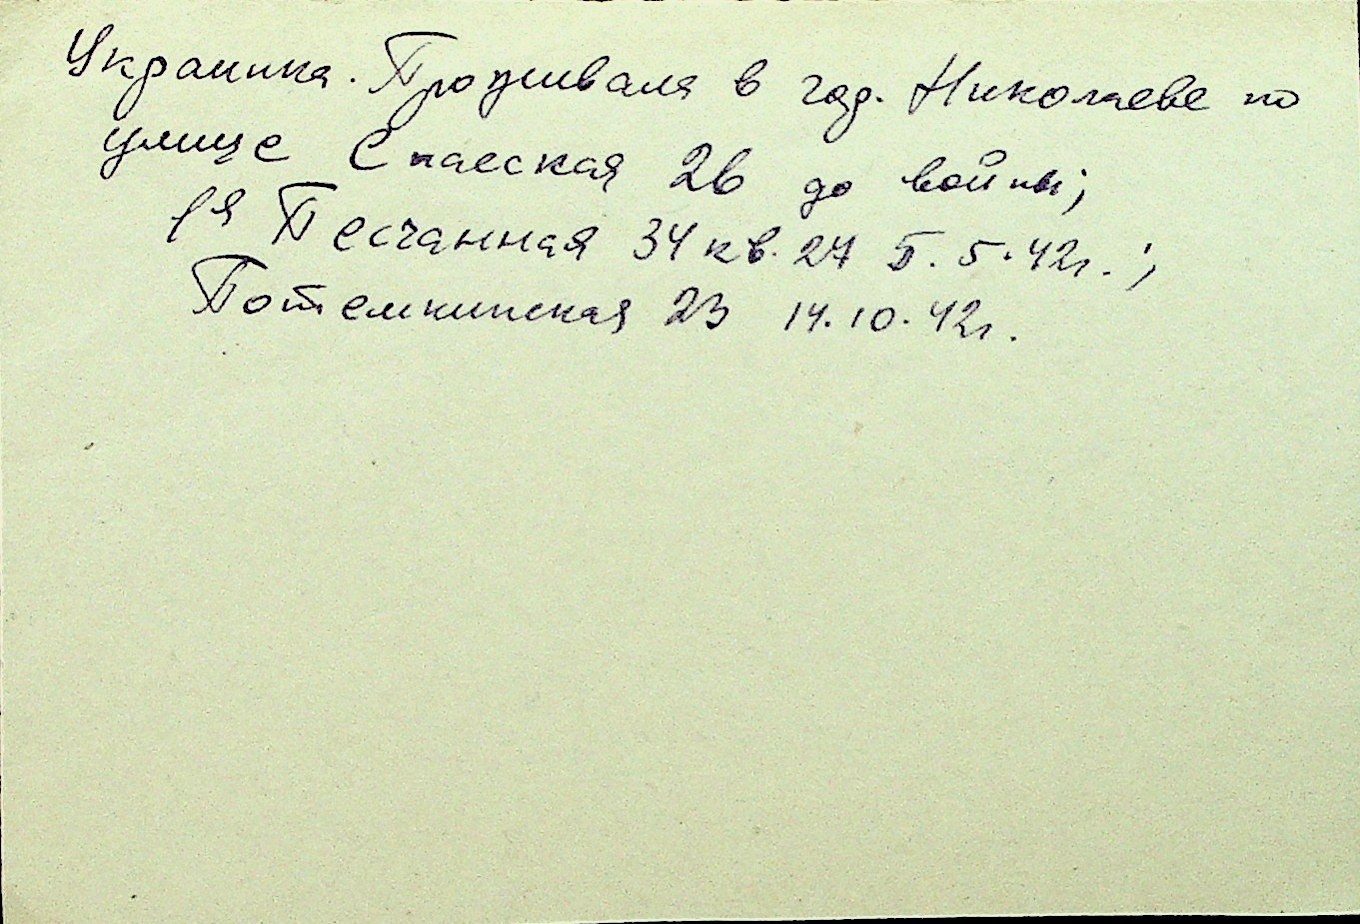 Украинка. Проживала в гор. Николаеве по
улице Спасская 26 до войны;
1я Песчанная 34 кв. 27 5. 5. 42г.;
Потемкинская 23 14. 10. 42г.